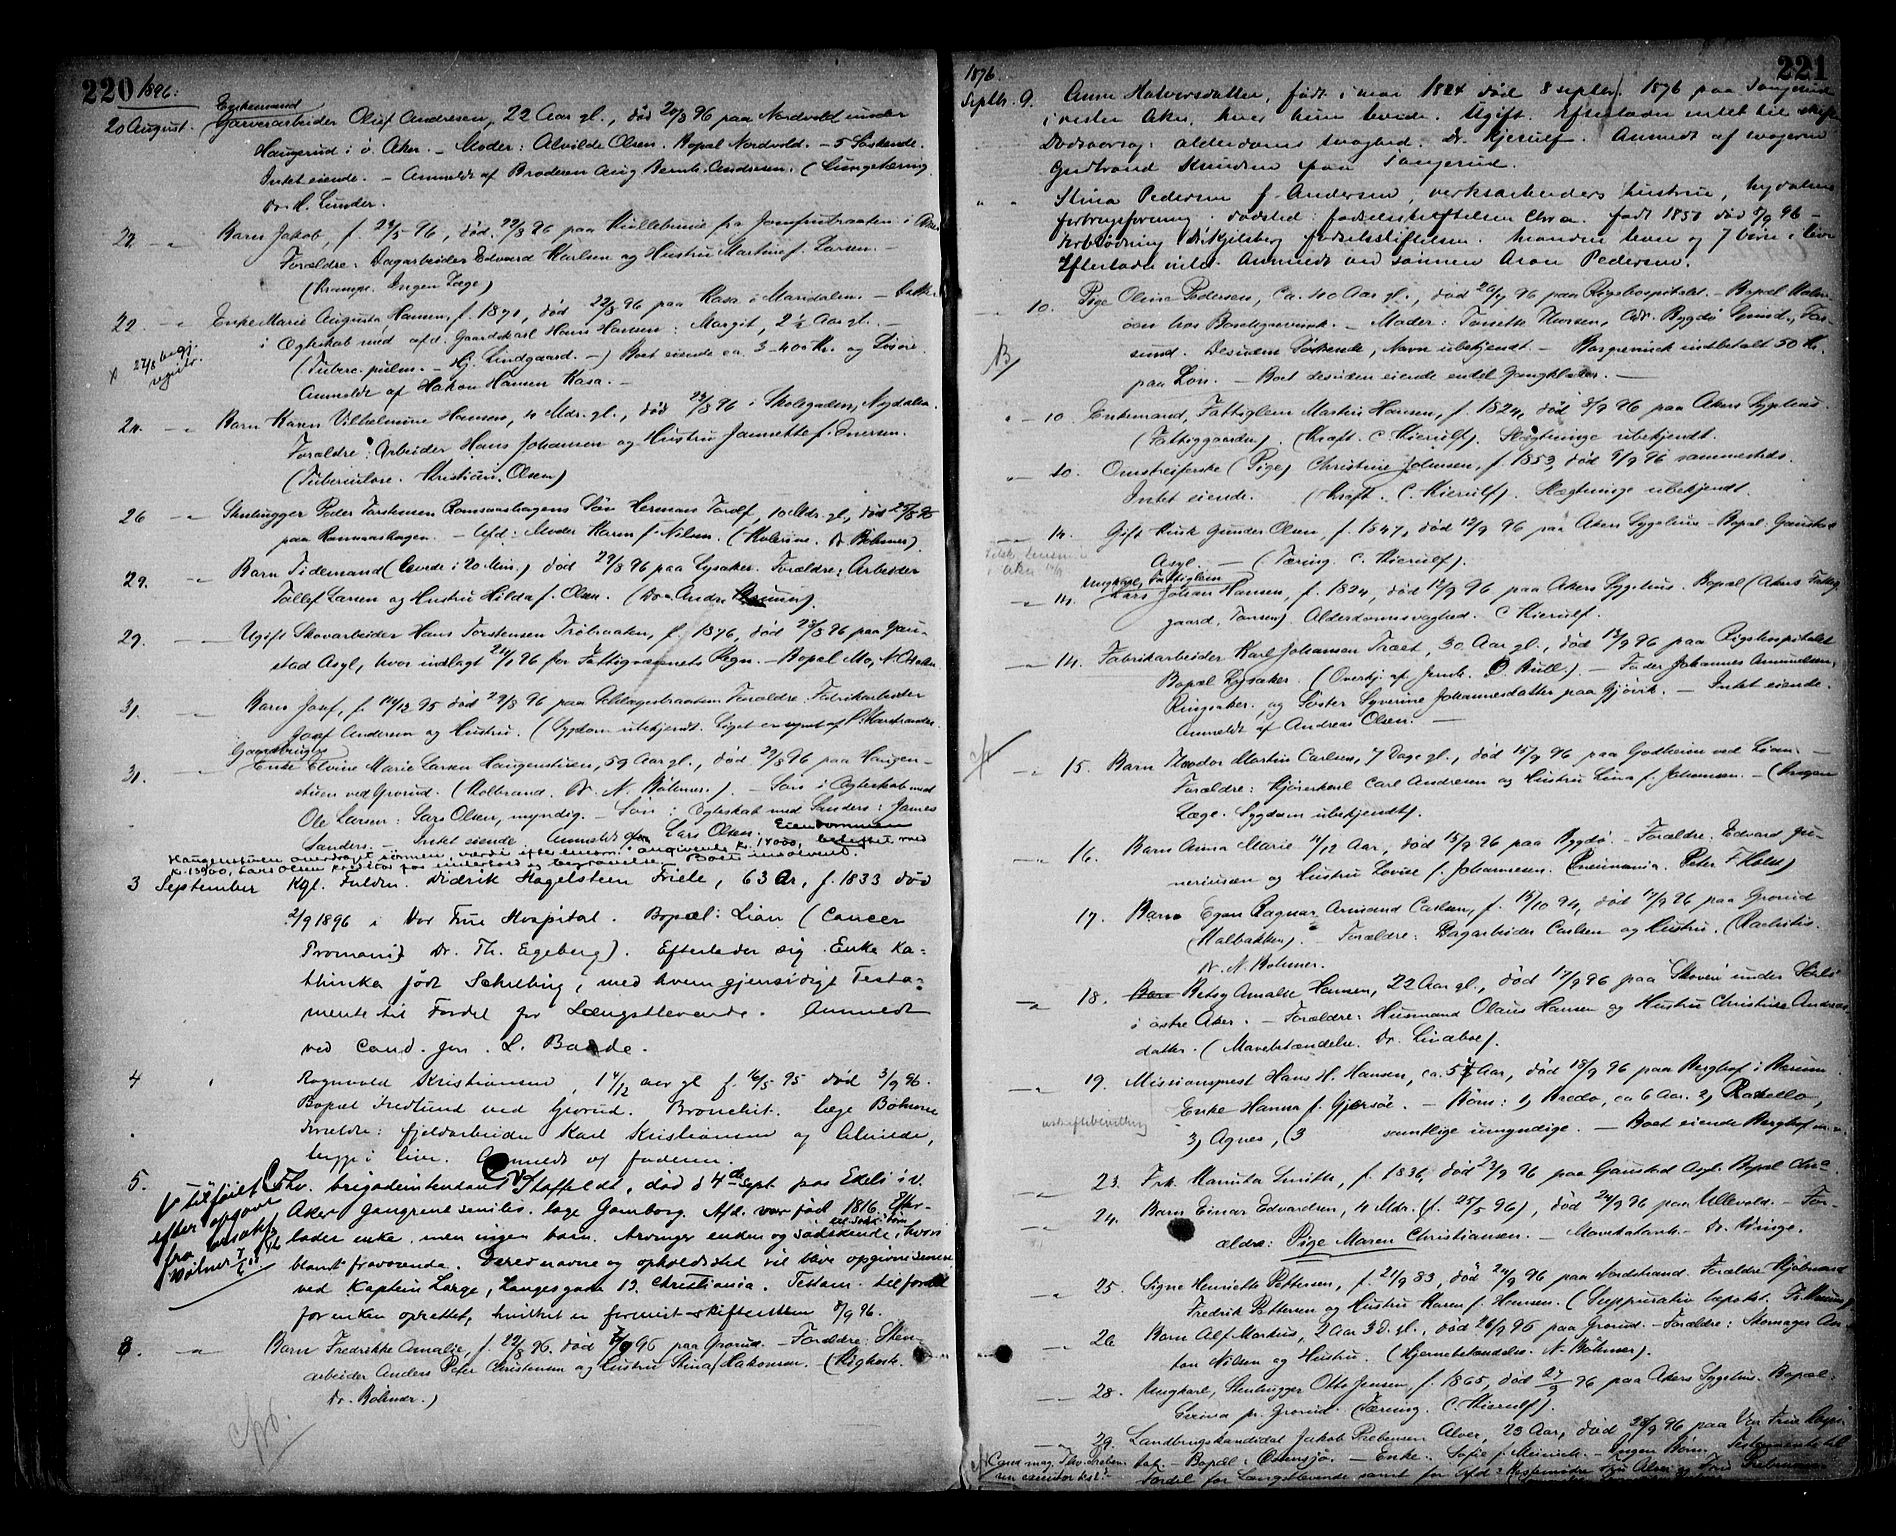 220 1896.
Enkemand
20 August. Garverarbeider Oluf Andresen, 22 Aar gl., død 20/8 96 paa Nordvold under
Haugerud i ø. Aker. – Moder: Alvilde Olsen. Bopæl Nordvold. – 5 Søskende.
Intet eiende. – Anmeldt af Broderen Aug. Bernh. Andresen. (Lungetæring.
Dr. H. Lunder.
22. – " Barn Jakob, f. 24/5 96, død 22/8 96 paa i Aker
Forældre: Dagarbeider Edvard Karlsen og Hustru Martine f. Larsen. –
(Krampe. Ingen Læge)
22. – " Enke Marie Augusta Hansen, f. 1871, død 22/8 96 paa Kasa i Maridalen. – Datter
i Egteskab med afd. Gaardskarl Hans Hansen: Margit, 2 1/2 Aar gl. –
x 27/8 begj. registr.
(Tuberc. pulm. – Hj. Lindgaard. –) Boet eiende ca. 3–400 Kr. og Løsøre.
Anmeldt af Hakon Hansen Kasa. –
24. – " Barn Karen Vilhelmine Hansen, 4 Mdr. gl., død 23/8 96 i Skolegaden, Nydalen.
Forældre: Arbeider Hans Johansen og Hustru Jannette f. Iversen.
(Tuberculose. Kristian Olsen)
26 – " Stenhugger Peder Torstensen Ramsaashagens Søn Herman Torolf, 10 Mdr. gl., død 25/8 96
paa Ramsaashagen. – Afd: Moder Karen f. Nilsen. (Kolerine. Dr. Bøhmer).
29. – " Barn Tidemand (levede i 20 Min.) død 29/8 96 paa Lysaker. Forældre: Arbeider
Tollef Larsen og Hustru Hilda f. Olsen.
29. – " Ugift Skovarbeider Hans Torstensen Trøbraaten, f. 1876, død 28/8 96 paa Gau-
stad Asyl, hvor indlagt 24/1 96 for Fattigvæsenets Regn. – Bopæl Mo, N. Odalen.
31. – " Barn Josef, f. 14/12 95 død 29/8 96, paa Forældre: Fabrikarbeider
Josef Andersen og Hustru. (Sygdom ubekjendt. Liget er synet af
Gaardbruger
31. – " Enke Elvine Marie Larsen Haugenstuen, 59 Aar gl., død 29/8 96 paa Haugen-
stuen ved Grorud. (Kolbrand. Dr. N. Bøhmer). – Søn i Egteskab med
Ole Larsen: Lars Olsen, myndig. – Søn i Egteskab med Sanders: James
Sanders. – Intet eiende. Anmeldt af Lars Olsen. Eiendommen
Haugenstuen overdraget sønnen, værdi efter angivende kr. 14000, beheftet med
kr. 13900, Lars Olsen kreditor for underhold og begravelse. Boet insolvent.
3 September Kgl. Fuldm. Didrik Hagelsteen Friele, 63 Ar, f. 1833 død
2/9 1896 i Vor Frue Hospital. Bopæl: Lian (Cancer
Dr. Th. Egeberg). Efterlader sig Enke Ka-
thinka født Schubing, med hvem gjensidigt Testa-
mente til Fordel for Længstlevende. Anmeldt
ved Cand. jur. L. Baade.
4 " Rognvald Kristiansen, 1 4/12 aar gl f. 16/5 95 død 3/9 96.
Bopæl Fredlund ved Grorud. Bronchit. læge Bøhmer
Forældre: fjeldarbeider Karl Kristiansen og Alvilde,
begge i live. Anmeldt af faderen.
5. Fhv. brigadeintendant Staffeldt, død d 4de Sept. paa Ekeli i v.
Aker Gangrena senilis. læge Gomborg. Afd. var født 1816. Efter-
lader enke men ingen børn. Arvinger enken og sødskende, hvori
blandt fraværende. Deres navne og opholdssted vil blive opgivne senere
ved Kaptein Lorge, Langesgade 13, Christiania. Testam. til fordel
for enken oprettet, hvilket er foreviist skifteretten 8/9 96.
V tilføiet efter opgave fra
8. – " Barn Fredrikke Amalie, f. 22/8 96, død 7/9 96 paa Grorud. – Forældre: Sten-
arbeider Anders Peter Christensen og Hustru Stina f. Hakonsen. (Kighoste.
Dr. Bøhmer.)
1896. 221
Septbr. 9. Anne Halvorsdatter, født i mai 1824 død 8 septbr. 1896 paa Tangerud
i vestre Aker, hvor hun levede. Ugift. Efterlader intet til skifte
Dødsaarsag: alderdoms svaghed. Dr. Kjerulf. Anmeldt af
Gudbrand Knudsen paa Tangerud.
" " Stina Pedersen f. Andersen, verksarbeiders hustru, Nydalens
forbrugsforening. dødsted: fødselsstiftelsen Chra. født 1850 død 8/9 96 –
Forblødning Dr. Kjelsberg fødselsstiftelsen. manden lever og 7 børn i live
Efterlader intet. Anmeldt ved sønnen Aron Pedersen.
– " 10. Pige Oline Pedersen, ca. 40 Aar gl., død 26/7 96 paa Rigshospitalet. – Bopæl
hos – Moder: Bygdø
Desuden Søskende, Navn ubekjendt. – indbetalt 50 Kr.
paa Løn. – Boet desuden eiende endel Gangklæder. –
" – 10. Enkemand, Fattiglem Martin Hansen, f. 1824, død 8/9 96 paa Akers Sygehus.
(Fattiggaarden). (Kræft. C. Kierulf). Slægtninge ubekjendt.
– " 10. Omstreiferske (Pige) Christine Johnsen, f. 1853, død 9/9 96 sammesteds.
Intet eiende. (Kræft. C. Kierulf). Slægtninge ubekjendt.
– " 14. Gift Husk. Gunder Olsen, f. 1847, død 12/9 96 paa Akers Sygehus – Bopæl: Gaustad
Asyl. – (Tæring. C. Kierulf).
Ungkarl, Fattiglem
– " 14. Lars Johan Hansen, f. 1824, død 12/9 96 paa Akers Sygehus. Bopæl (Akers Fattig-
gaard, Tonsen). Alderdomssvaghed. C. Kierulf.
– " 14. Fabrikarbeider Karl Johansen Træet, 30 Aar gl., død 13/9 96 paa Rigshospitalet
Bopæl Lysaker. (Overkj. af Jernb. O. Bull). – Fader Johannes Amundsen,
Ringsaker, og Søster Syverine Johannesdatter paa Gjøvik. – Intet eiende.
Anmeldt af Andreas Olsen. –
– " 15. Barn Theodor Martin Carlsen, 7 Dage gl., død 15/9 96 paa Godheim ved Lian. –
Forældre: Kjørekarl Carl Andresen og Hustru Lina f. Johansen. – (Ingen
Læge. Sygdom ubekjendt).
– " 16. Barn Anna Marie 11/12 Aar, død 15/9 96 paa Bygdø. – Forældre: Edvard Gu-
neriussen og Hustru Lovise f. Johannesen. (Pneumonia. Peter F. Holst)
17. Barn Egon Ragnar Armand Carlsen, f. 15/10 94, død 17/9 96 paa Grorud
(Kalbakken). – Forældre: Dagarbeider Carlsen og Hustru. (Rachitis.
Dr. N. Bøhmer.
– " 18. Barn Betsy Amalie Hansen, 22 Aar gl., død 17/9 96 paa "Skoven" under
i østre Aker. – Forældre: Husmand Olaus Hansen og Hustru Christine Andreas-
datter. (Mavebetændelse. Dr. Lindboe).
– " 19. Missionsprest Hans H. Hansen, ca. 57 Aar, død 18/9 96 paa Berghof i Bærum.
Enke Hanna f. Gjersøe. – Børn: 1) Bredo, ca 6 Aar. 2) Rakella,
uskiftebevilling
3) Agnes, (3 samtlige umyndige. – Boet eiende Berghof
– " 23. Frk. Manita Smith, f. 1836, død 23/9 96 paa Gaustad Asyl. Bopæl Chra.
– " 24. Barn Einar Edvardsen, 4 Mdr. (f. 25/5 96), død 24/9 96 paa Ullevold. – For-
ældre: Pige Maren Christiansen. – Mavekatarrh. – Dr. Vinge.
– " 25. Signe Henriette Pettersen, f. 21/9 83, død 24/9 96 paa Nordstrand. Forældre
Fredrik Pettersen og Hustru Karen f. Hansen.
– " 26 Barn Alf Markus, 2 Aar 3 D. gl., død 26/9 96 paa Grorud. – Forældre: Skomager An-
ton Nilsen og Hustru. (Hjernebetændelse. N. Bøhmer).
– " 28. Ungkarl, Stenhugger Otto Jensen, f. 1865, død 27/9 96 paa Akers Sygehus. Bopæl:
pr. Grorud. (Tæring. C. Kierulf).
– " 29. Landbrugskandidat Jakob Prebensen Alver, 23 Aar, død 28/9 96 paa Vor Frue Hospi-
tal. – Bopæl: Østensjø. – Enke: Sofie f. – Ingen Børn. Testamente til
Fordel for Længstlevende samt for Afd:s